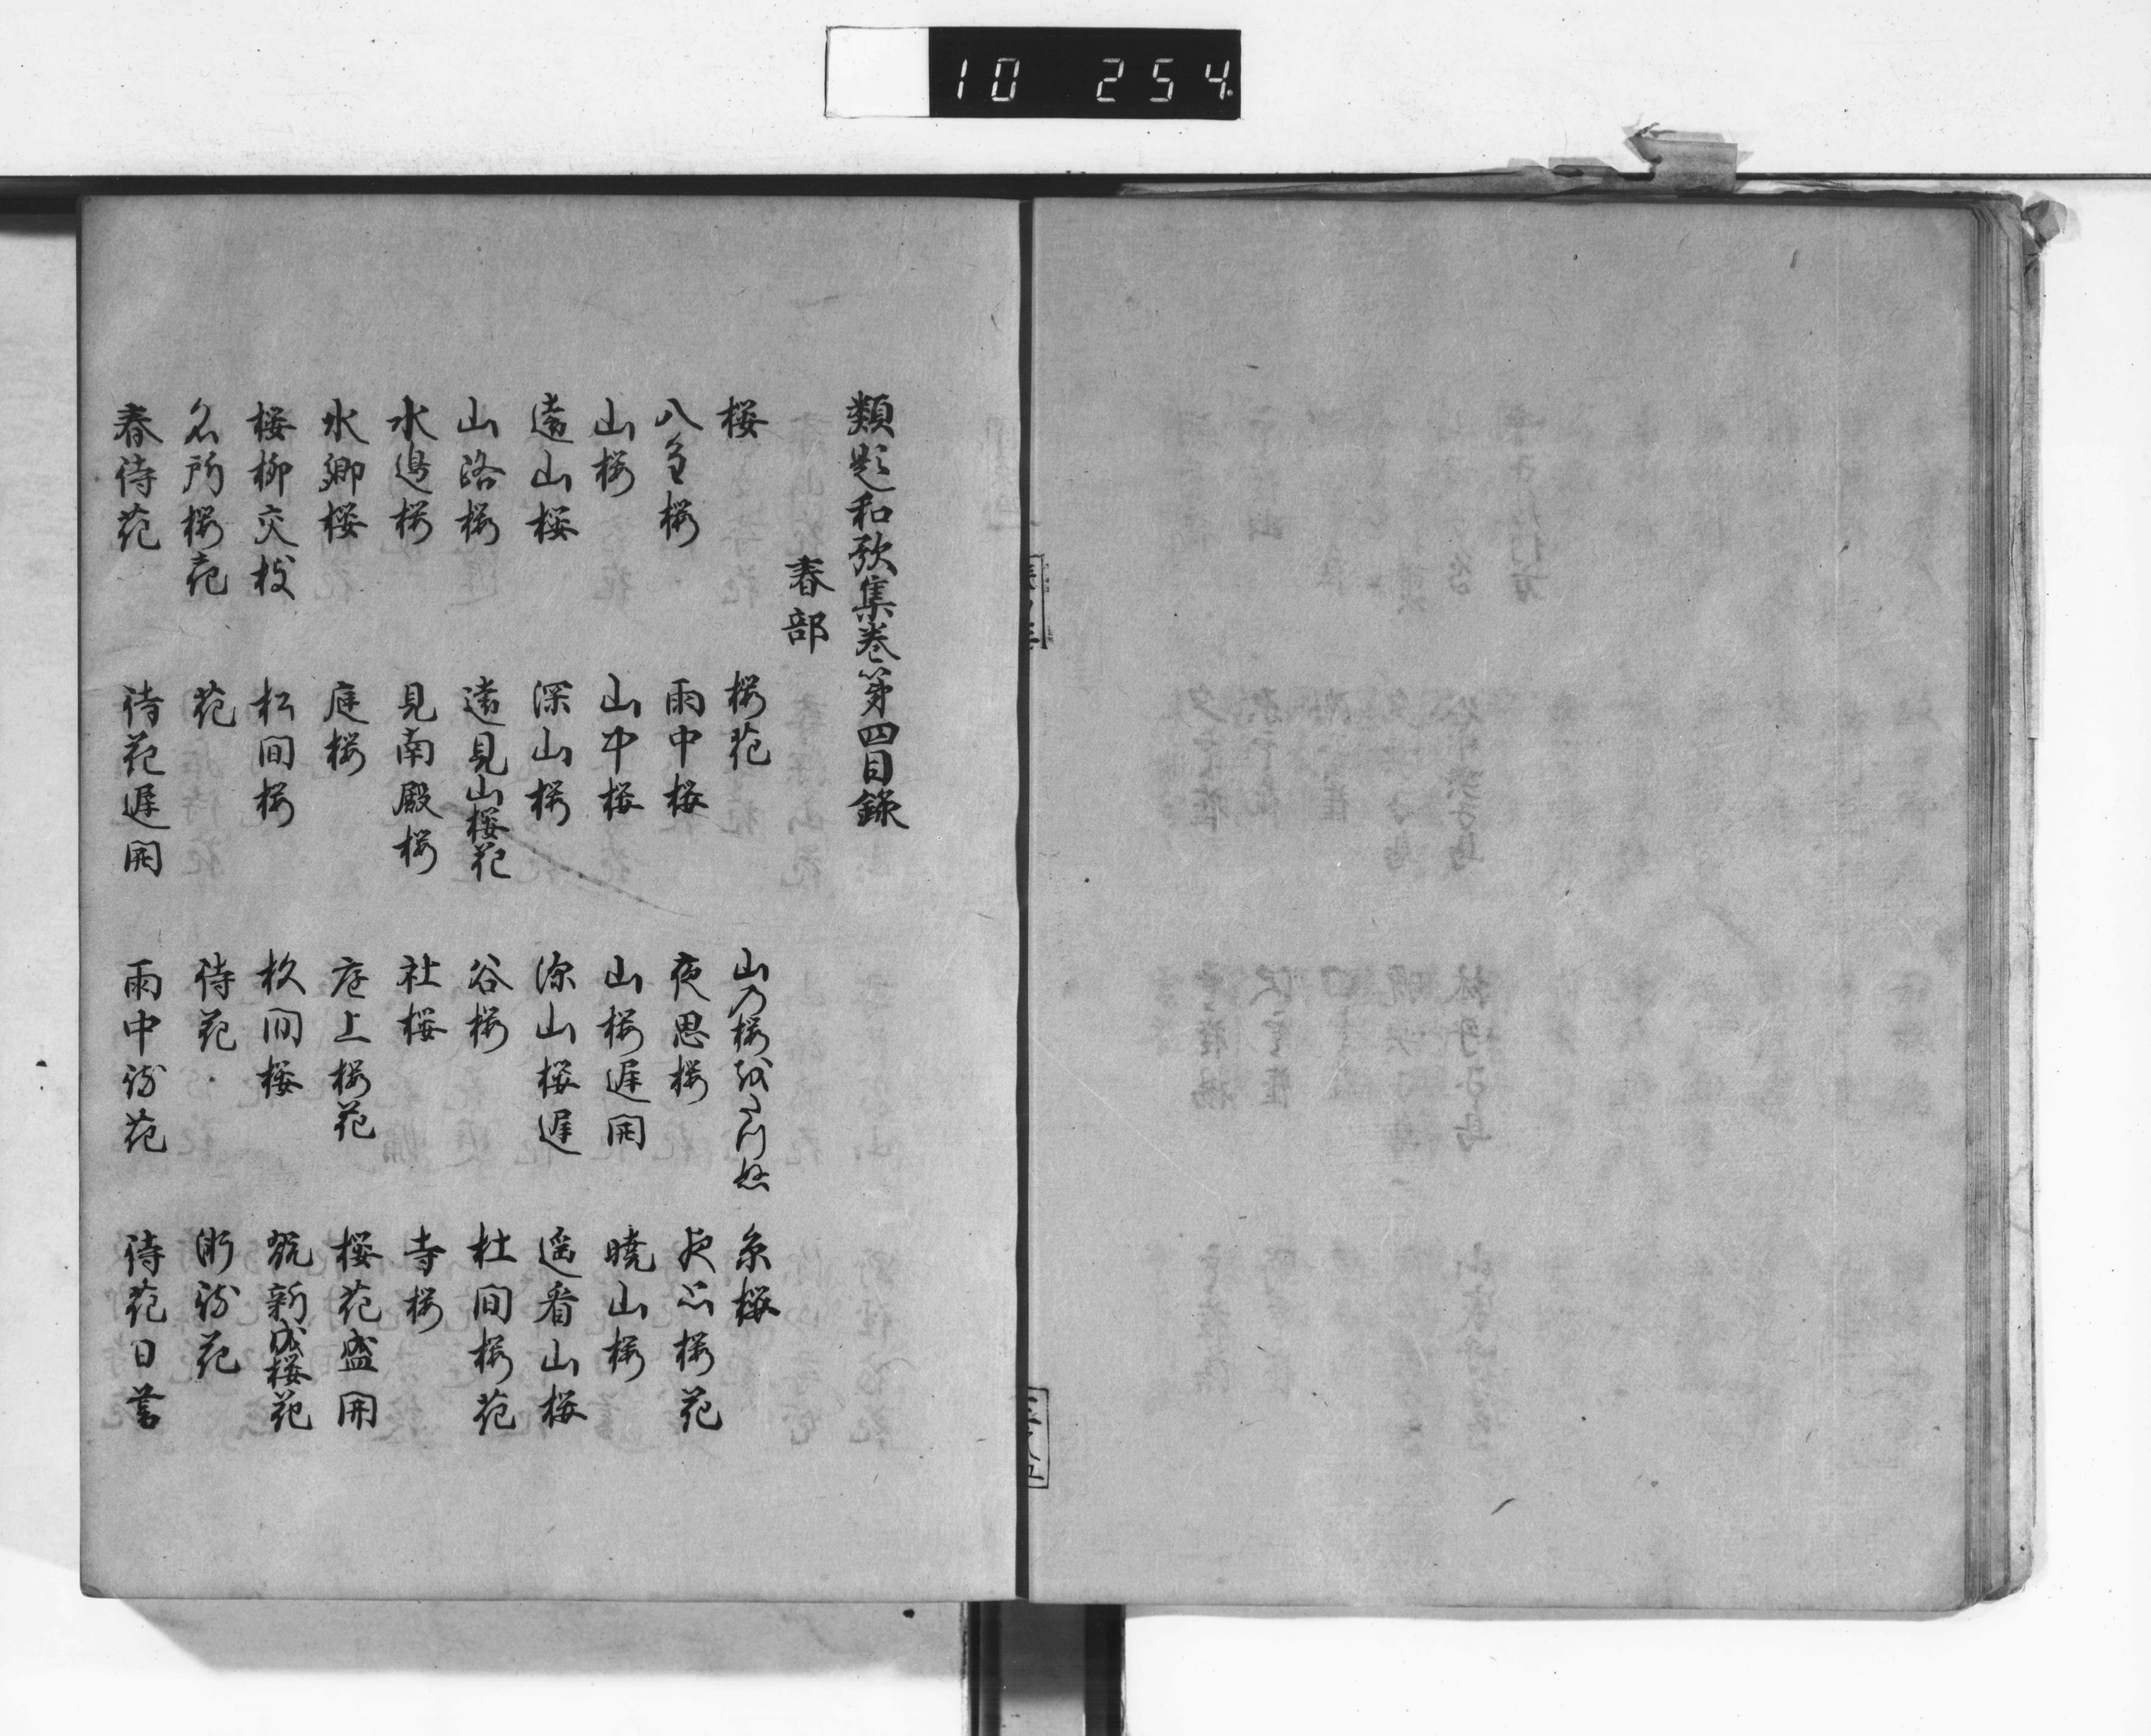 10 254
類題和歌集巻第四目録
春部
桜 桜花 山乃桜 糸桜
八重桜 雨中桜 夜思桜 夜思桜花
山桜 山中桜 山桜遅開 暁山桜
遠山桜 深山桜 深山桜遅 遥看山桜
山路桜 遠見山桜花 谷桜 杜間桜花
水辺桜 見南殿桜 社桜 寺桜
水郷桜 庭桜 庭上桜花 桜花盛開
桜柳交枝 松間桜 杉間桜 翫新成桜花
名所桜花 花 待花 漸待花
春待花 待花遅開 雨中待花 待花日暮